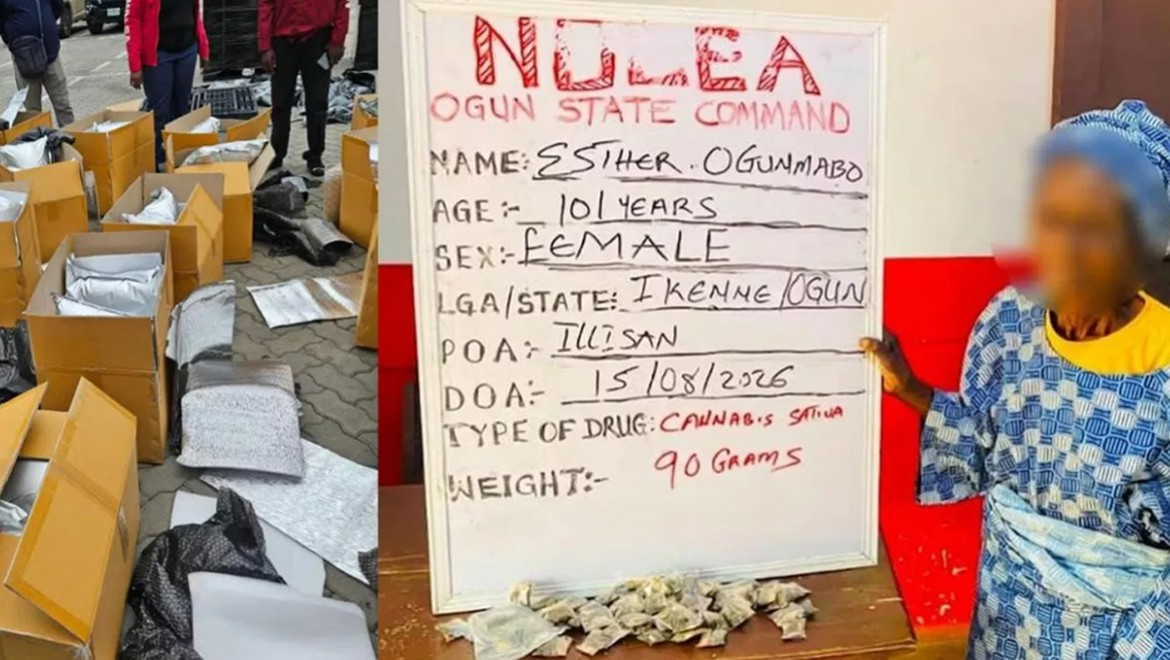 NDLEA
OGUN STATE COMMAND
NAME: ESTHER. OGUNMABO
AGE:- 101 YEARS
SEX:- FEMALE
LGA/STATE: IKENNE/OGUN
POA:- ILLISAN
DOA:- 15/08/2026
TYPE OF DRUG: CANNABIS SATIVA
WEIGHT:- 90 GRAMS